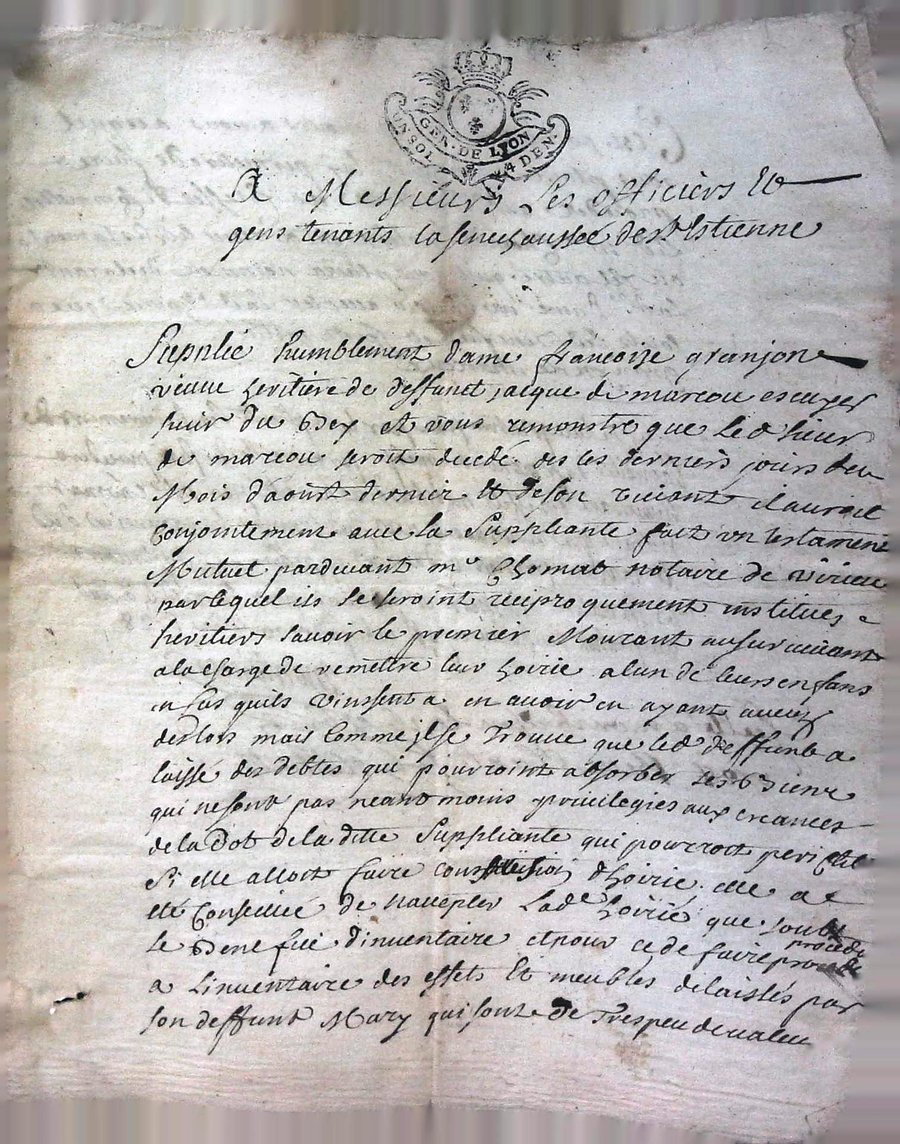 GEN. DE LYON
UN SOL 4 DEN.
A Messieurs Les officiers Et
gens tenants la senechaussée de St Estienne
Supplie humblement dame francoize granjon
veuve heritiere de deffunct jacque de marcou escuyer
sieur du Bey Et vous remonstre que led sieur
de marcou seroit decedé des les derniers jours du
Mois d'aoust dernier Et de son vivant il auroit
conjointement avec la Suppliante fait un testament
Mutuel pardevant me Chomat notaire de virieu
par lequel ils se seroint reciproquement institues
heritiers savoir le premier Mourant au survivant
a la charge de remettre leur hoirie a lun de leurs enfans
en cas quils vinssent a en avoir en ayant
deslors mais Comme il se Trouve que led deffunt a
laissé des debtes qui pourroint absorber ses Biens
qui ne sont pas neantmoins privilegies aux creances
de la Dot de la ditte Suppliante qui pourroit
Si elle alloit faire d'hoirie elle a
Eté Conseillée de n'accepter Lade hoirie que soubs
le Benefice d'inventaire et pour ce de faire proceder
a L'inventaire des effets Et meubles delaissés par
son deffunt Mary qui sont de Tres peu de valeur